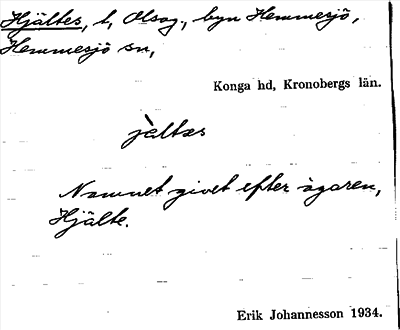 Hjältes, t, Olsag., byn Hemmesjö,
Hemmesjö sn,
Konga hd, Kronobergs län.
jèltas
Namnet givet efter ägaren,
Hjälte.
Erik Johannesson 1934.